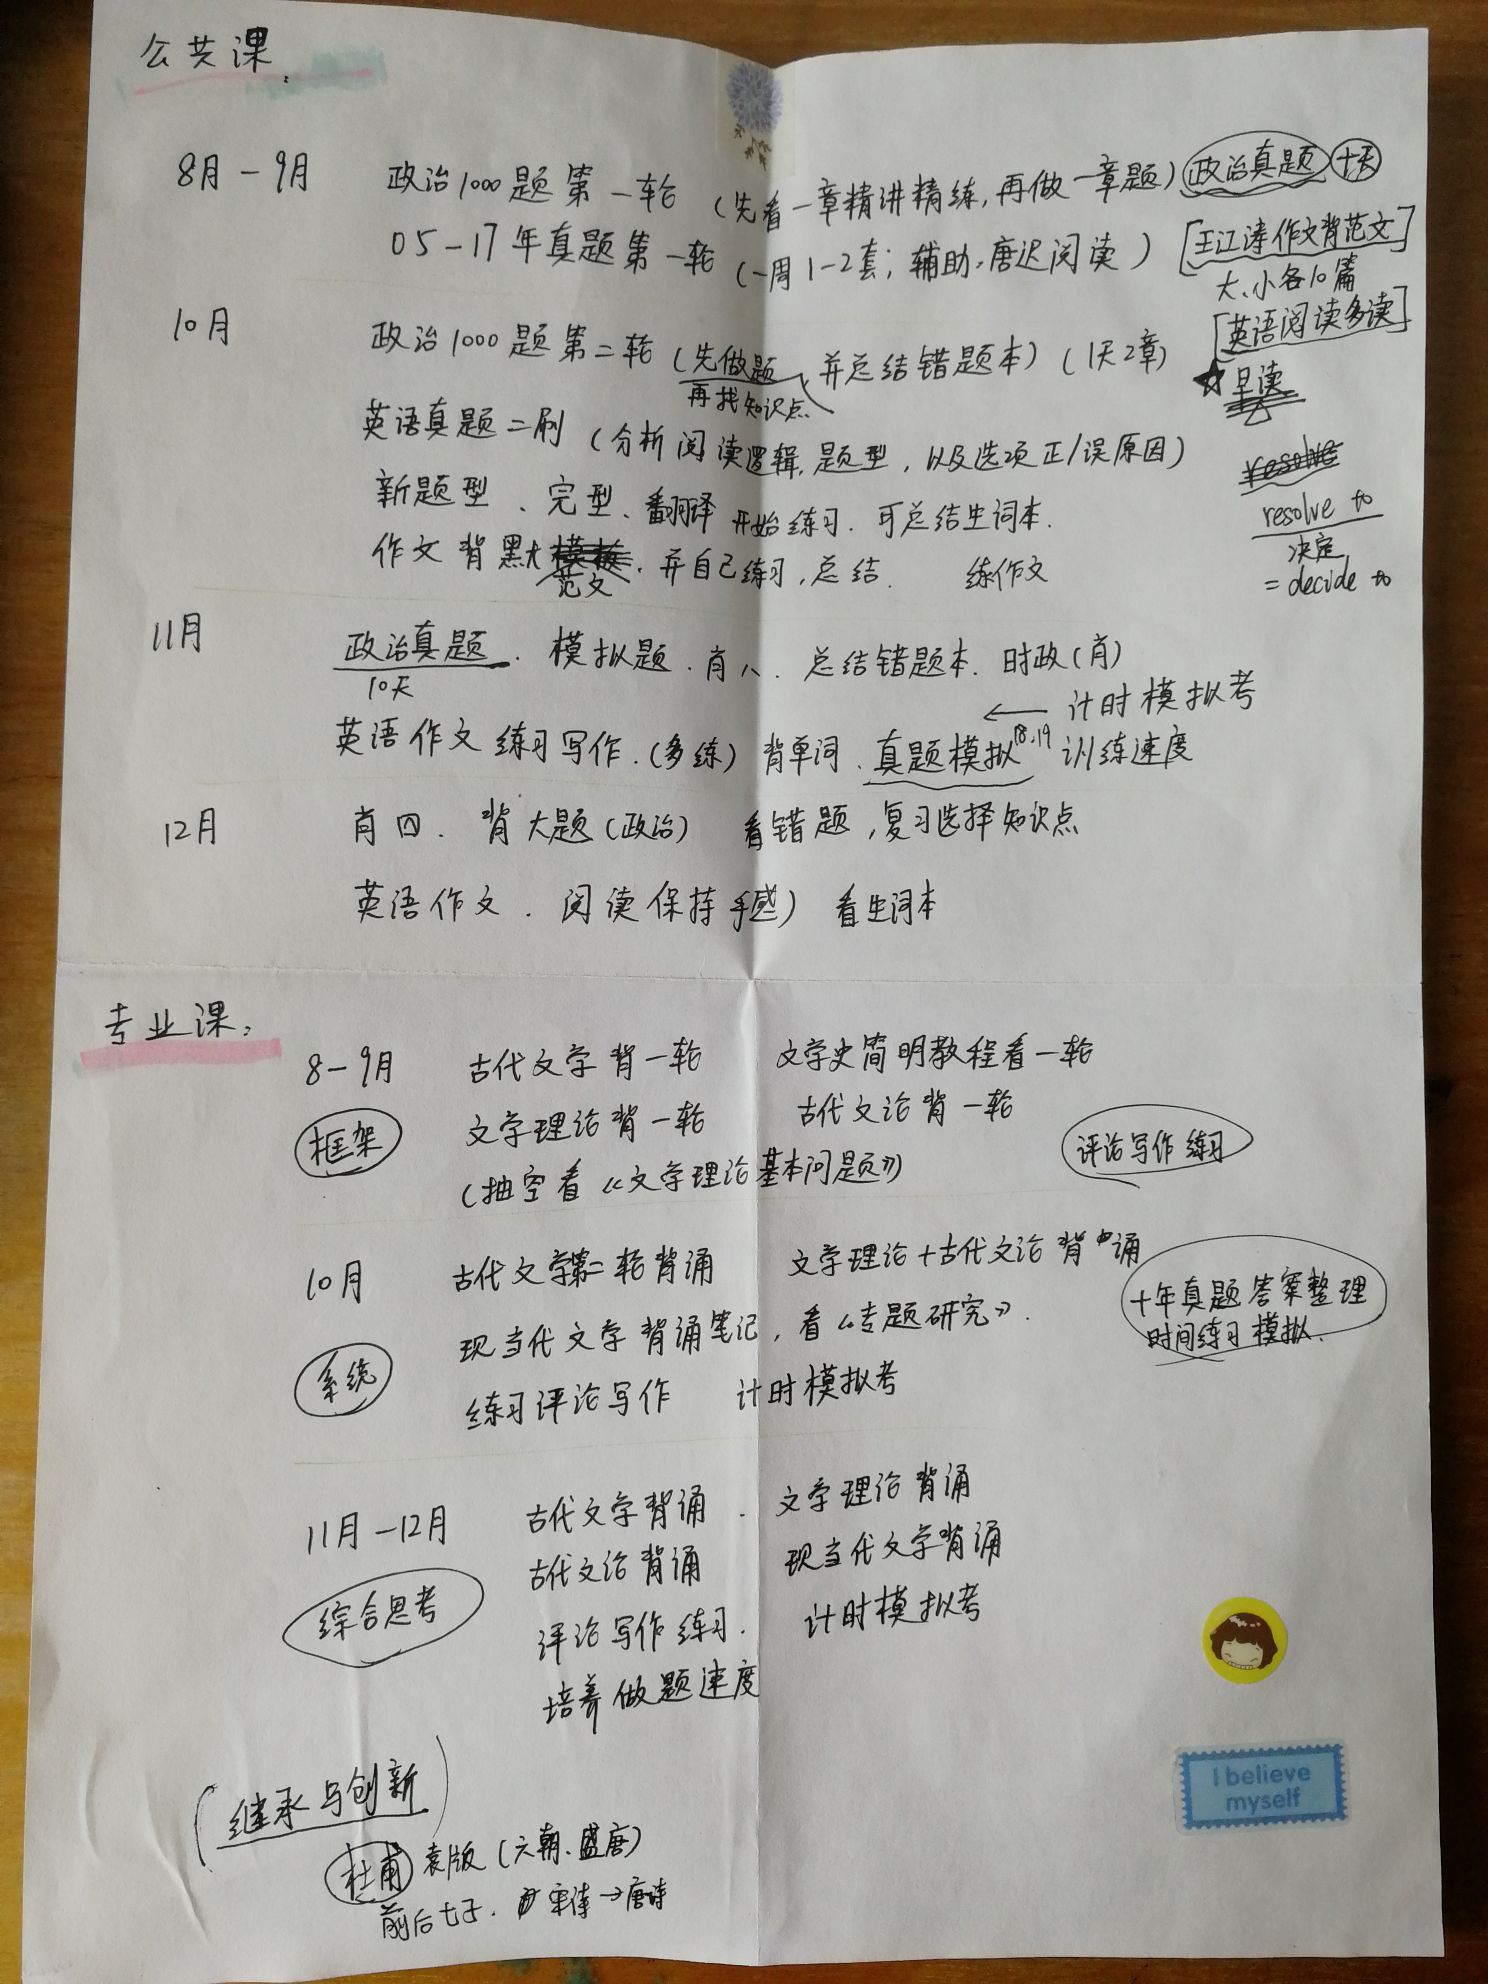 公共课.
8月－9月 政治1000题第一轮 (先看一章精讲精练,再做一章题) 政治真题 十天
05－17年真题第一轮 (一周1－2套; 辅助.唐迟阅读) [王江涛作文背范文]
大、小各10篇
[英语阅读多读]
★早读
10月 政治1000题第二轮 (先做题,并总结错题本) (1天2章)
再找知识点
英语真题二刷 (分析阅读逻辑,题型,以及选项正/误原因)
新题型、完型、翻译 开始练习. 可总结生词本.
作文背默模板,并自己练习,总结. 练作文
范文
resolve
resolve to
决定
= decide to
11月 政治真题. 模拟题.肖八. 总结错题本.时政(肖)
10天
← 计时模拟考
英语作文练习写作.(多练) 背单词.真题模拟18.19 训练速度
12月 肖四. 背大题(政治) 看错题,复习选择知识点
英语作文. 阅读保持手感) 看生词本
专业课:
8－9月 古代文学背一轮 文学史简明教程看一轮
框架 文学理论背一轮 古代文论背一轮
评论写作练习
(抽空看《文学理论基本问题》)
10月 古代文学第二轮背诵 文学理论+古代文论背诵
系统 现当代文学背诵笔记,看《专题研究》.
十年真题答案整理
时间练习模拟.
练习评论写作 计时模拟考
11月－12月 古代文学背诵. 文学理论背诵
综合思考 古代文论背诵 现当代文学背诵
评论写作练习. 计时模拟考
培养做题速度
I believe
myself
(继承与创新)
杜甫 袁版(六朝.盛唐)
前后七子. 宋诗→唐诗